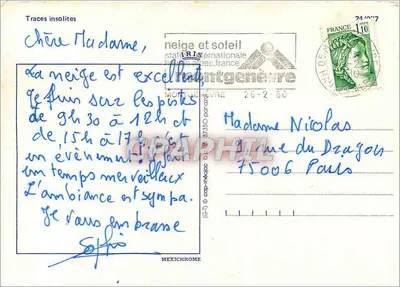 Traces insolites
24 1077
IRIS
Chère Madame,
La neige est excellente
Je suis sur les pistes
de 9h30 à 12h et
de 15h à 17h. C'est
un évènement! Il fait
un temps merveilleux
L'ambiance est sympa.
Je vous embrasse
neige et soleil
station internationale
hautes alpes. france
montgenèvre
MONTGENEVRE
26-2-80
FRANCE
1,10
Madame Nicolas
rue du Dragon
75006 Paris
GRAPHIL
MEXICHROME